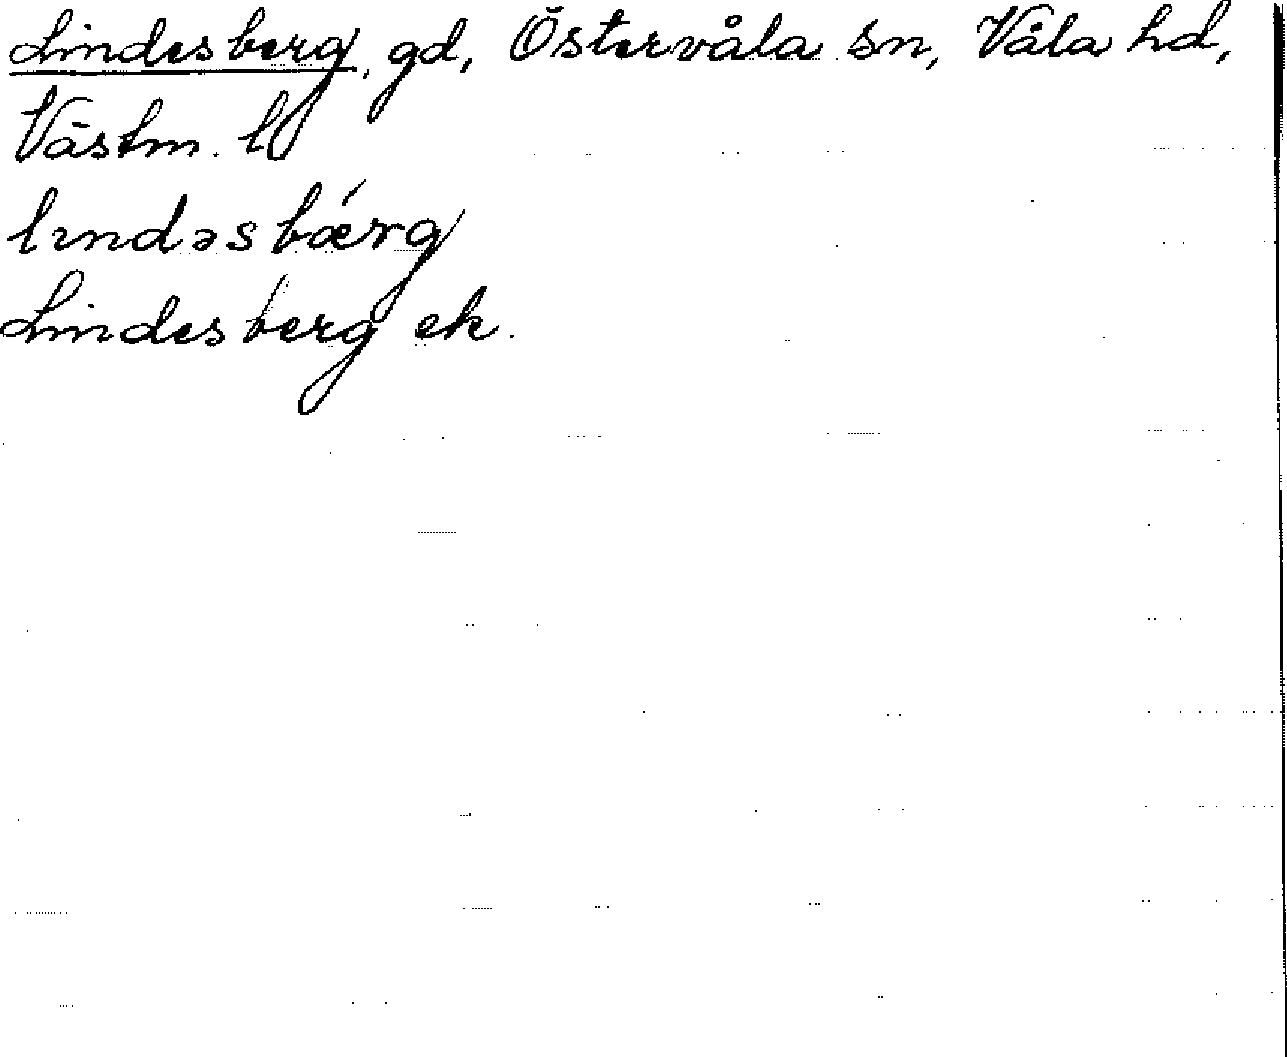 Lindesberg, gd, Östervåla sn, Våla hd,
Västm. l
lındəsbǽrg
Lindesberg ek.